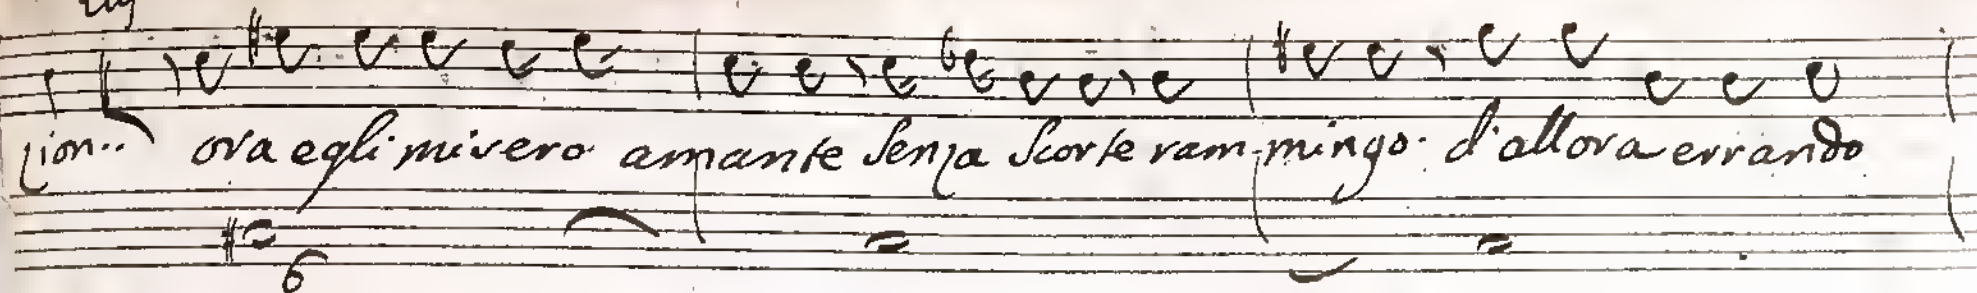 zion.. ora egli misero amante senza scorte ram-mingo. d'allora errando
6